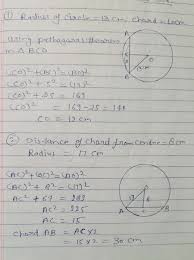 ① Radius of circle = 13 cm, Chord = 10cm
Using pythagoras theorem
in △ BCD
(CO)² + (BC)² = (BO)²
(CO)² + 5² = (13)²
(CO)² + 25 = 169
(CO)² = 169 - 25 = 144
CO = 12 cm
A
O
B
② Distance of chord from centre = 8cm
Radius = 17 cm
(AC)² + (OC)² = (AO)²
(AC)² + 8² = (17)²
AC² + 64 = 289
AC² = 225
AC = 15
Chord AB = AC × 2
= 15 × 2 = 30 cm
17
8
A
B